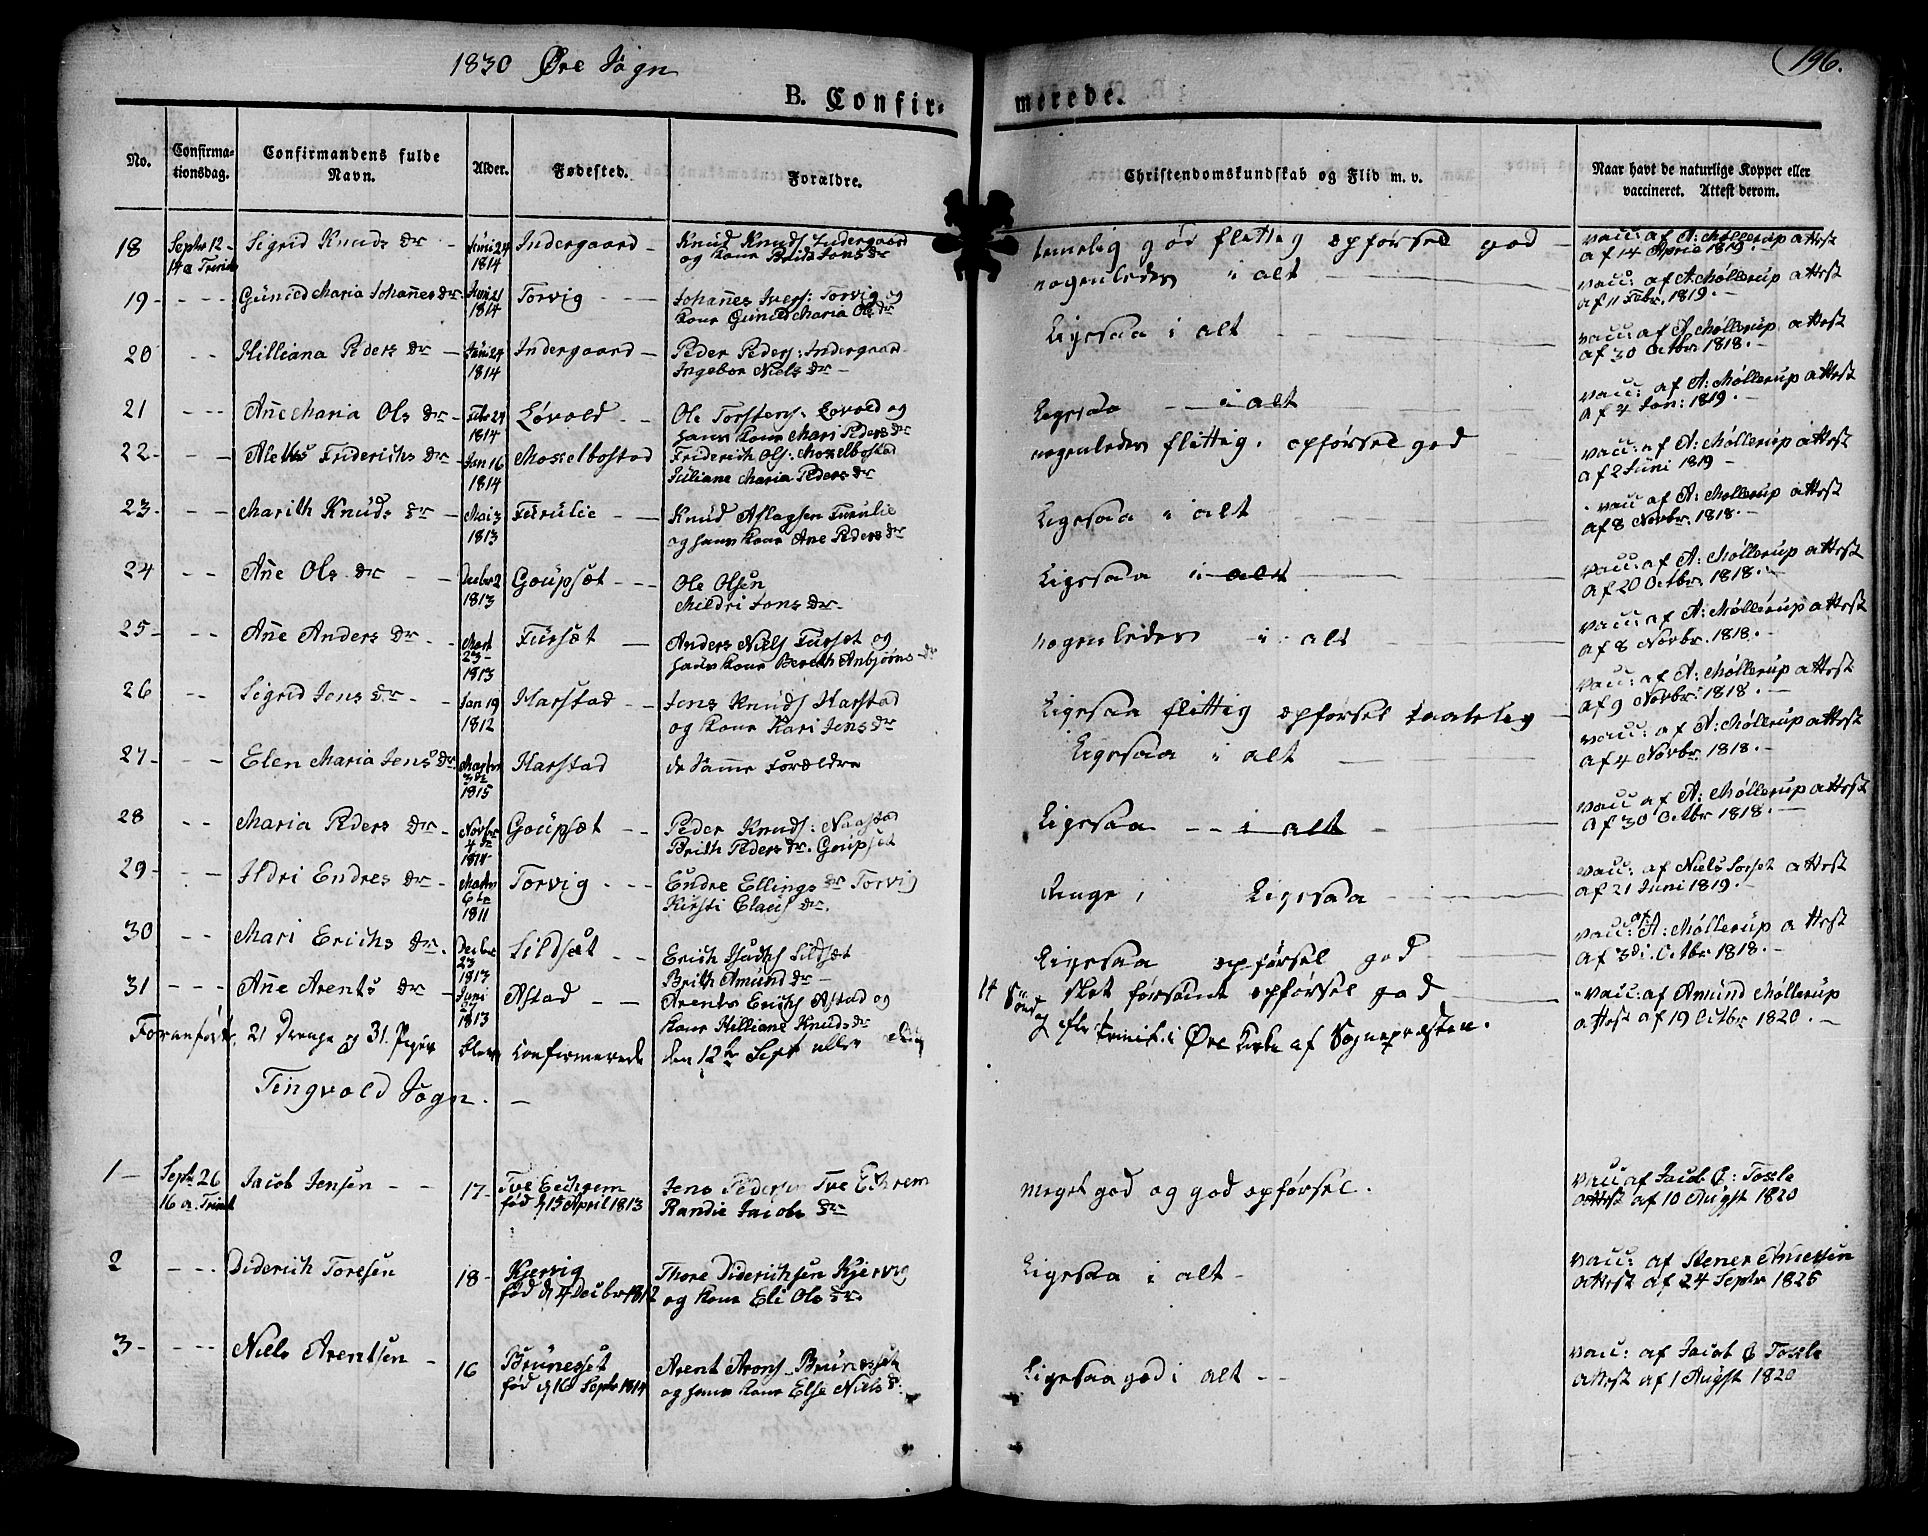 1830 Øre Sogn
196.
B. Confirmerede.
No. Confirmationsdag. Confirmandens fulde Navn. Alder. Fødested. Forældre. Christendomskundskab og Flid m. v. Naar havt de naturlige Kopper eller vaccineret. Attest derom.
18 Septr 12 - Sigrid Knuds Dr - Juni 24 Indergaard - Knud Knuds Indergaard temelig god flittig opførsel god - vacc: af A: Møllerup attest
14 a Trinit 1814 og kone Brith Jons Dr af 14 April 1819.
19 - - - - Guneld Maria Johanes Dr 1814 Torvig - - - Johanes Ivers: Torvig og nogenledes i alt - vacc: af A: Møllerup attest
kone Guneld Maria Ols Dr af 11 Febr. 1819. -
20 - - Killiana Peders Dr - Juni 24 Indergaard - Peder Peders: Indergaard Ligesaa i alt - vacc: af A: Møllerup attest
1814 Ingebor Niels Dr - af 30 Octbr 1818. -
21 - - - Ane Maria Ols Dr - Febr 24 Løvold - - Ole Torstens: Løvold og Ligesaa - i alt - vacc: af A: Møllerup attest
1814 hans kone Mari Peders Dr af 4 Jan: 1819.
22 - - - Frederichs Dr - Jan 16 Mosselbostad Friderich Ols: Mosselbostad nogenledes flittig. opførsel god - vacc: af A: Møllerup attest
1814 Killiane Maria Peders Dr af 2 Juni 1819 -
23. - - Marith Knuds Dr - Mai 3 Furulie - - Knud Aslagsen Furulie Ligesaa i alt - vacc af A: Møllerup attest
1813 og hans kone Ane Peders Dr af 8 Novbr. 1818. -
24 - - Ane Ols Dr - - Decbr 2 Goupset - - - Ole Olsen Ligesaa i alt - vacc: af A: Møllerup attest
1813 Mildri Jons Dr. af 20 Octbr. 1818. -
25 - - - Ane Anders Dr - - Mart 23 - Furset - Anders Niels Furset og nogenledes i alt - vacc: af A: Møllerup attest
1813 hans kone Bereth Anbjørns Dr af 8 Novbr. 1818. -
26 - - Sigrid Jens Dr. - - Jan 19 Harstad - - Jens Knuds Harstad Ligesaa flittig opførsel taalelig - vacc: af A: Møllerup attest
1812 og kone Kari Jons Dr af 9 Novbr: 1818. -
27 - - - Elen Maria Jens Dr 1815 Harstad de samme Forældre Ligesaa i alt - vacc: af A: Møllerup attest
af 4 Novbr. 1818. -
28 - - Maria Peders Dr. - Novbr 4de Goupset - - Peder Knuds: Naastad Ligesaa - - i alt - vacc af A: Møllerup attest
1814 Brith Peders Dr. Goupset af 30 Octbr 1818. -
29 - - - Ildri Endres Dr - 1811 Torvig - - - Endre Ellings Torvig Ringe i Ligesaa - vacc: af Niels attest
Kirsti Claus Dr. af 21 Juni 1819. -
30 - - Mari Erichs Dr. Decbr 23 Sildset - - Erich Sildset Ligesaa opførsel god - vacc: af A: Møllerup attest
1813 Brith Amund Dr - af 3di Octbr 1818. -
31 - - - Ane Arents Dr - Juni 27 Astad - - Arents Erichs Astad og slet forsømt opførsel god - vacc: af Amund Møllerup
1813 kone Killiane Knuds Dr attest af 19 Octbr 1820. -
Foranførte 21 Drenge og 31. Piger blev Confirmerede den 12te Sept eller 14 Søndag efter Trinit. i Øre Kirke af Sognepræsten.
Tingvold Sogn. -
1 - Septr 26 Jacob Jensen - - 17 - Tve Jens Pedersen Tve Meget god og god opførsel. vacc af Jacob Ø: Toxle
16 a. Trinit født d 15 April 1813 Randie Jacobs Dr attest af 10 Augst 1820
2 - - - Diderich Toresen 18 - Kjervig Thore Diderichsen Kjervig Ligesaa i alt - vacc: af Stener
fød d 4 Decbr 1812 og kone Eli Ols Dr. attest af 24 Septr 1825
3 - - - - Niels Arentsen - 16 Brunesset Arent Arons. Brunesset Ligesaa god i alt - - vacc: af Jacob Ø Toxle
fød d 16 Septr 1814 og hans kone Else Niels D: attest af 1 Augst 1820